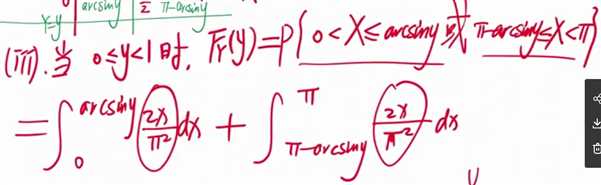 x=y arcsiny π-arcsiny
(iii). 当 0≤y<1时, F_Y(y)=P{0<X≤arcsiny 或 π-arcsiny≤X<π}
=∫_0^{arcsiny} 2x/π² dx + ∫_{π-arcsiny}^{π} 2x/π² dx